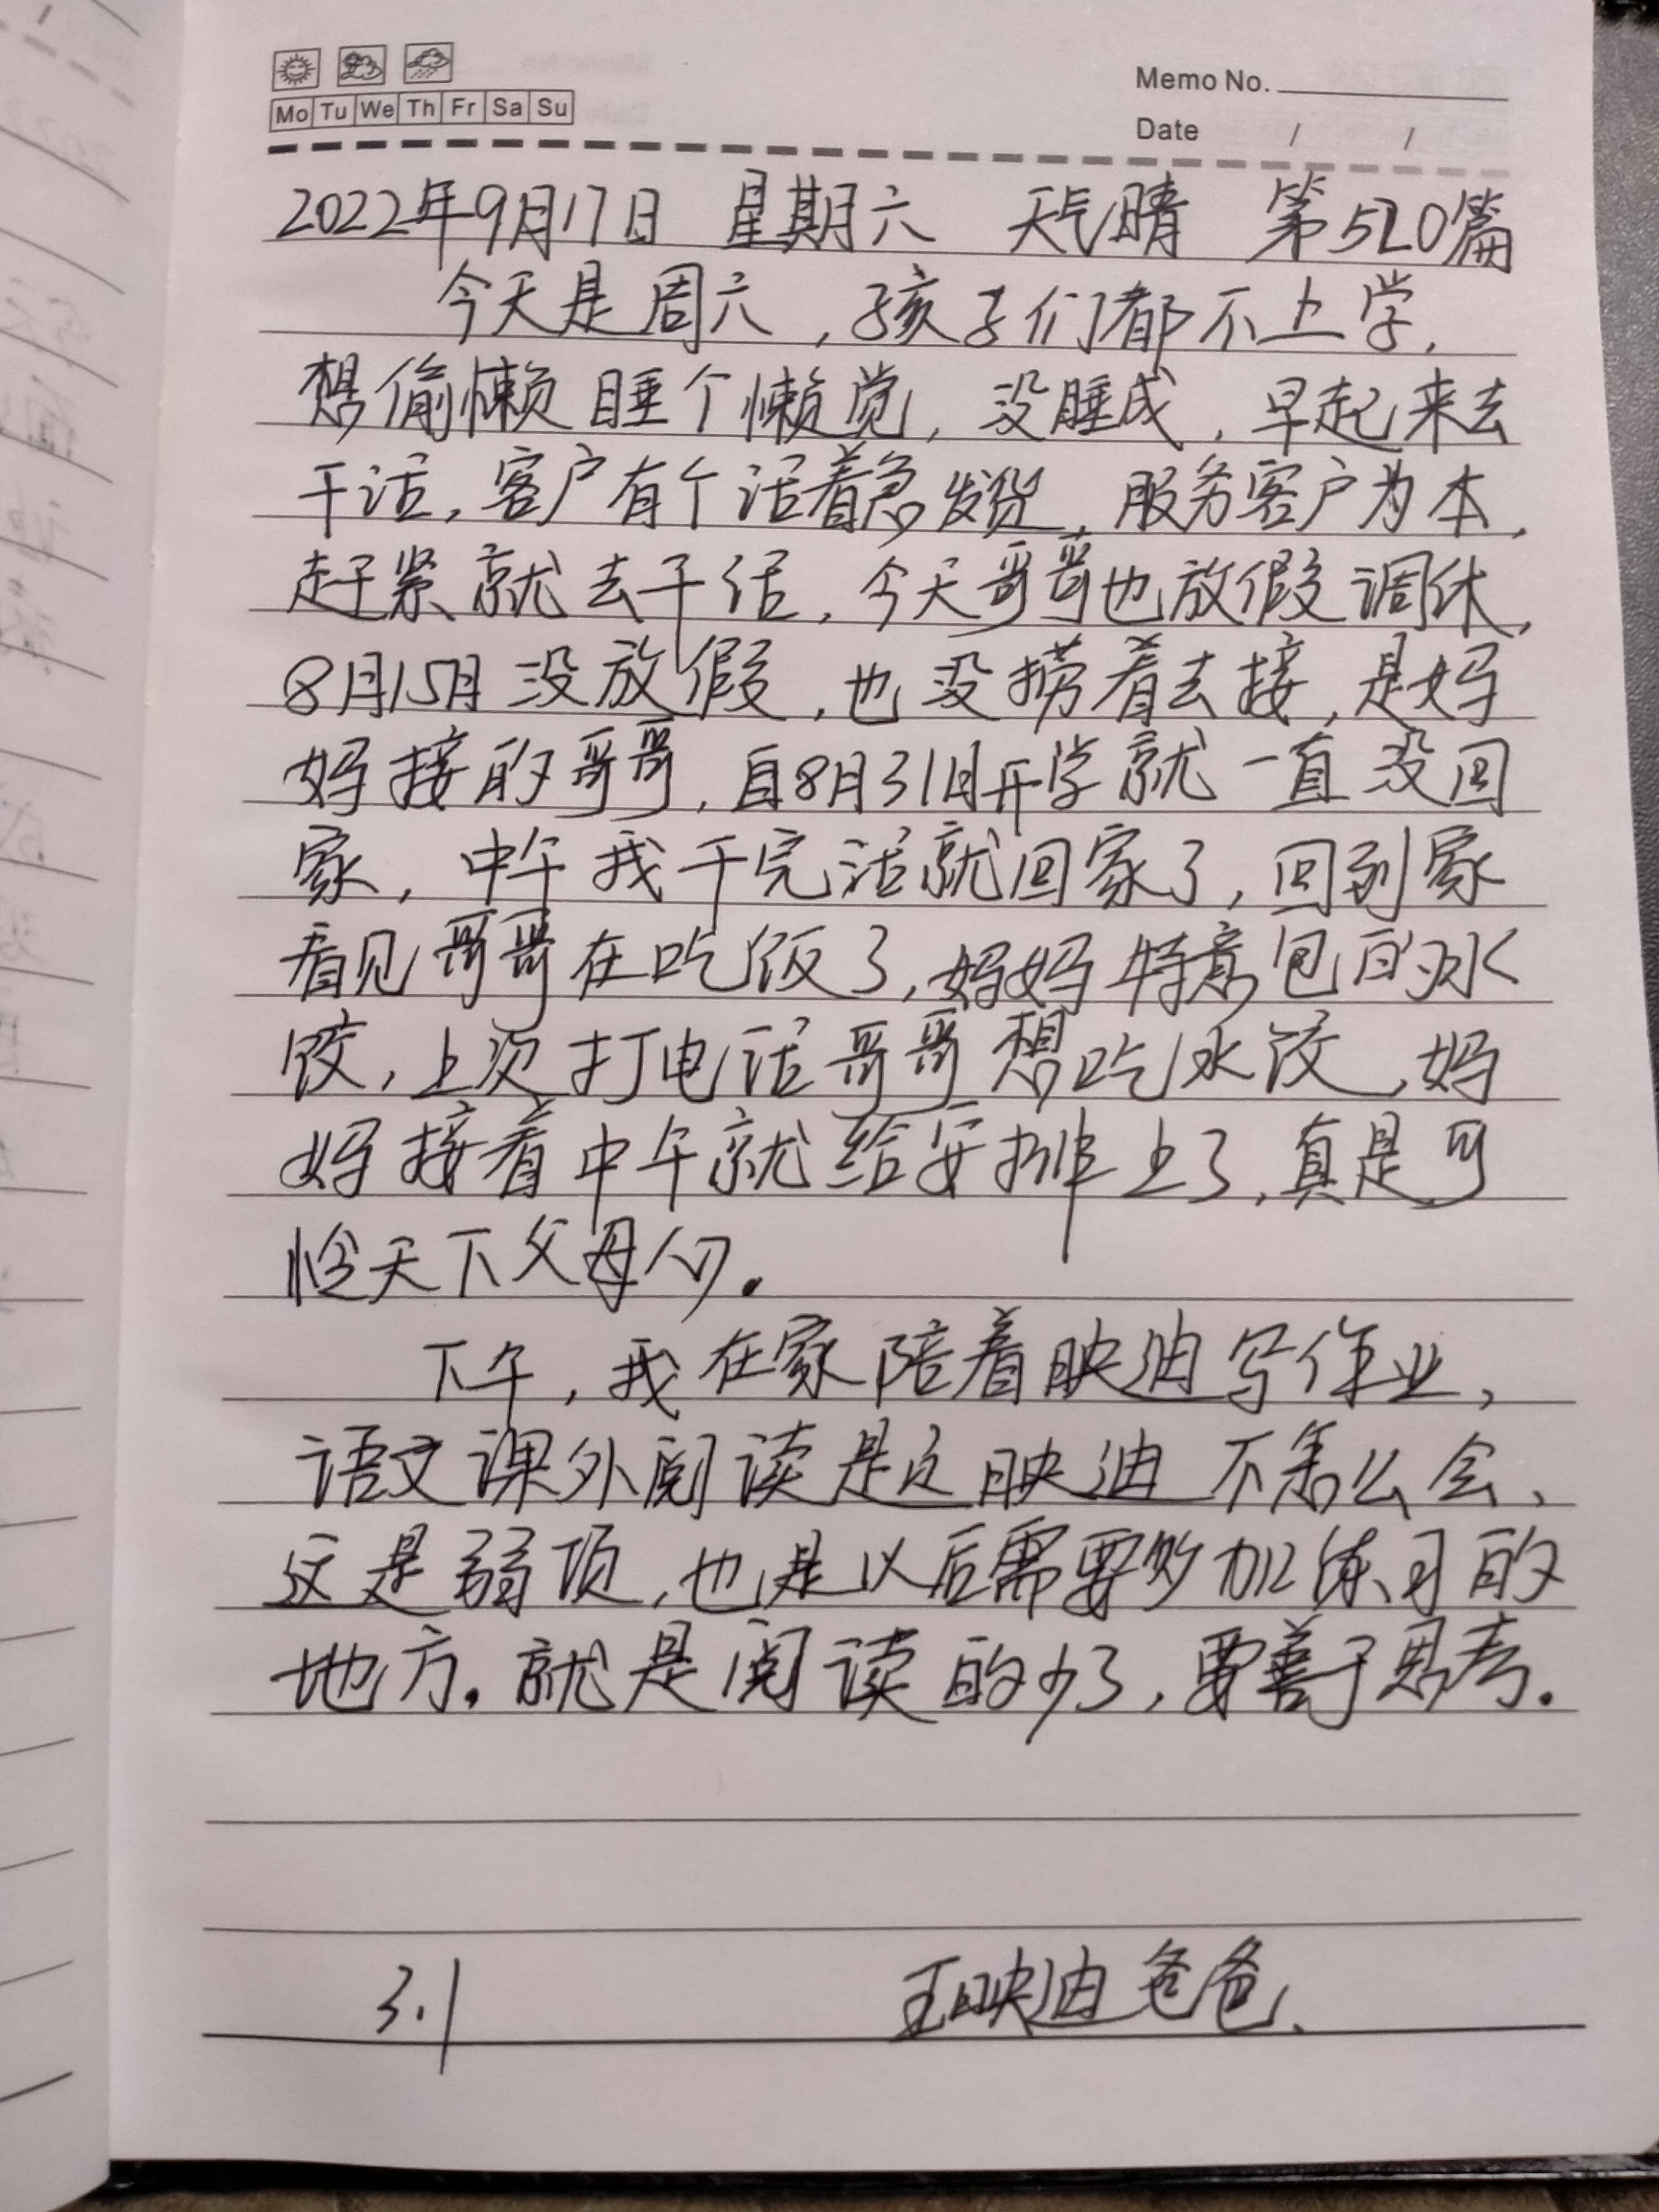 Mo Tu We Th Fr Sa Su
Memo No.
Date / /
2022年9月17日 星期六 天气晴 第520篇
今天是周六,孩子们都不上学,
想偷懒睡个懒觉,没睡成,早起来去
干活,客户有个活着急发货,服务客户为本,
赶紧就去干活,今天哥哥也放假调休,
8月15月没放假,也没捞着去接,是妈
妈接的哥哥,自8月31日开学就一直没回
家,中午我干完活就回家了,回到家
看见哥哥在吃饭了,妈妈特意包的水
饺,上次打电话哥哥想吃水饺,妈
妈接着中午就给安排上了,真是可
怜天下父母心。
下午,我在家陪着映迪写作业,
语文课外阅读是这映迪不怎么会、
这是弱项,也是以后需要多加练习的
地方。就是阅读的少了,要善于思考。
3.1 王映迪爸爸、